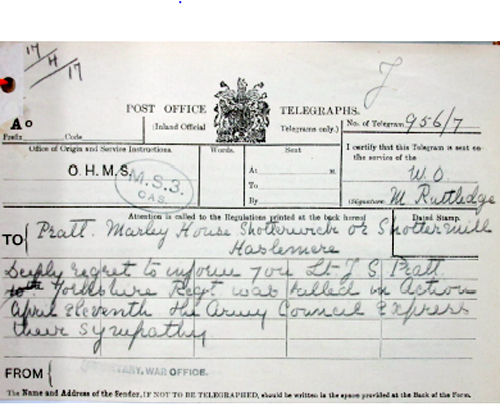 17
4
17
J
POST OFFICE TELEGRAPHS.
(Inland Official Telegrams only.)
No. of Telegram 956/7
A o
Prefix Code
Office of Origin and Service Instructions.
Words.
Sent
I certify that this Telegram is sent on
the service of the
O.H.M.S.
M.S.3.
CAS.
At M
To
By
W.O.
(Signature) M Rutledge
Attention is called to the Regulations printed at the back hereof
Dated Stamp.
TO { Pratt. Marley House Shotterwick or Shottermill
Haslemere
Deeply regret to inform you Lt J S Pratt
Yorkshire Regt was killed in Action
April Eleventh The Army Council Express
their Sympathy
FROM { SECRETARY, WAR OFFICE.
The Name and Address of the Sender, IF NOT TO BE TELEGRAPHED, should be written in the space provided at the Back of the Form.